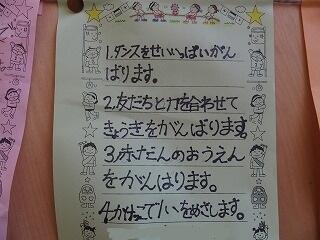 1.ダンスをせいいっぱいがん
ばります。
2.友だちと力を合わせて
きょうぎをがんばります。
3.赤だんのおうえん
をがんばります。
4.かけっこで1いをめざします。